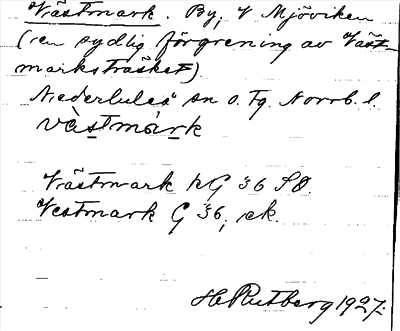 Västmark. By, V Mjöviken
(en sydlig förgrening av Väst-
marksträsket)
Nederluleå sn o. tg. Norrb. l.
västmark
Västmark hG 36 SO.
Vestmark G 36, ek.
H Rutberg 1927.